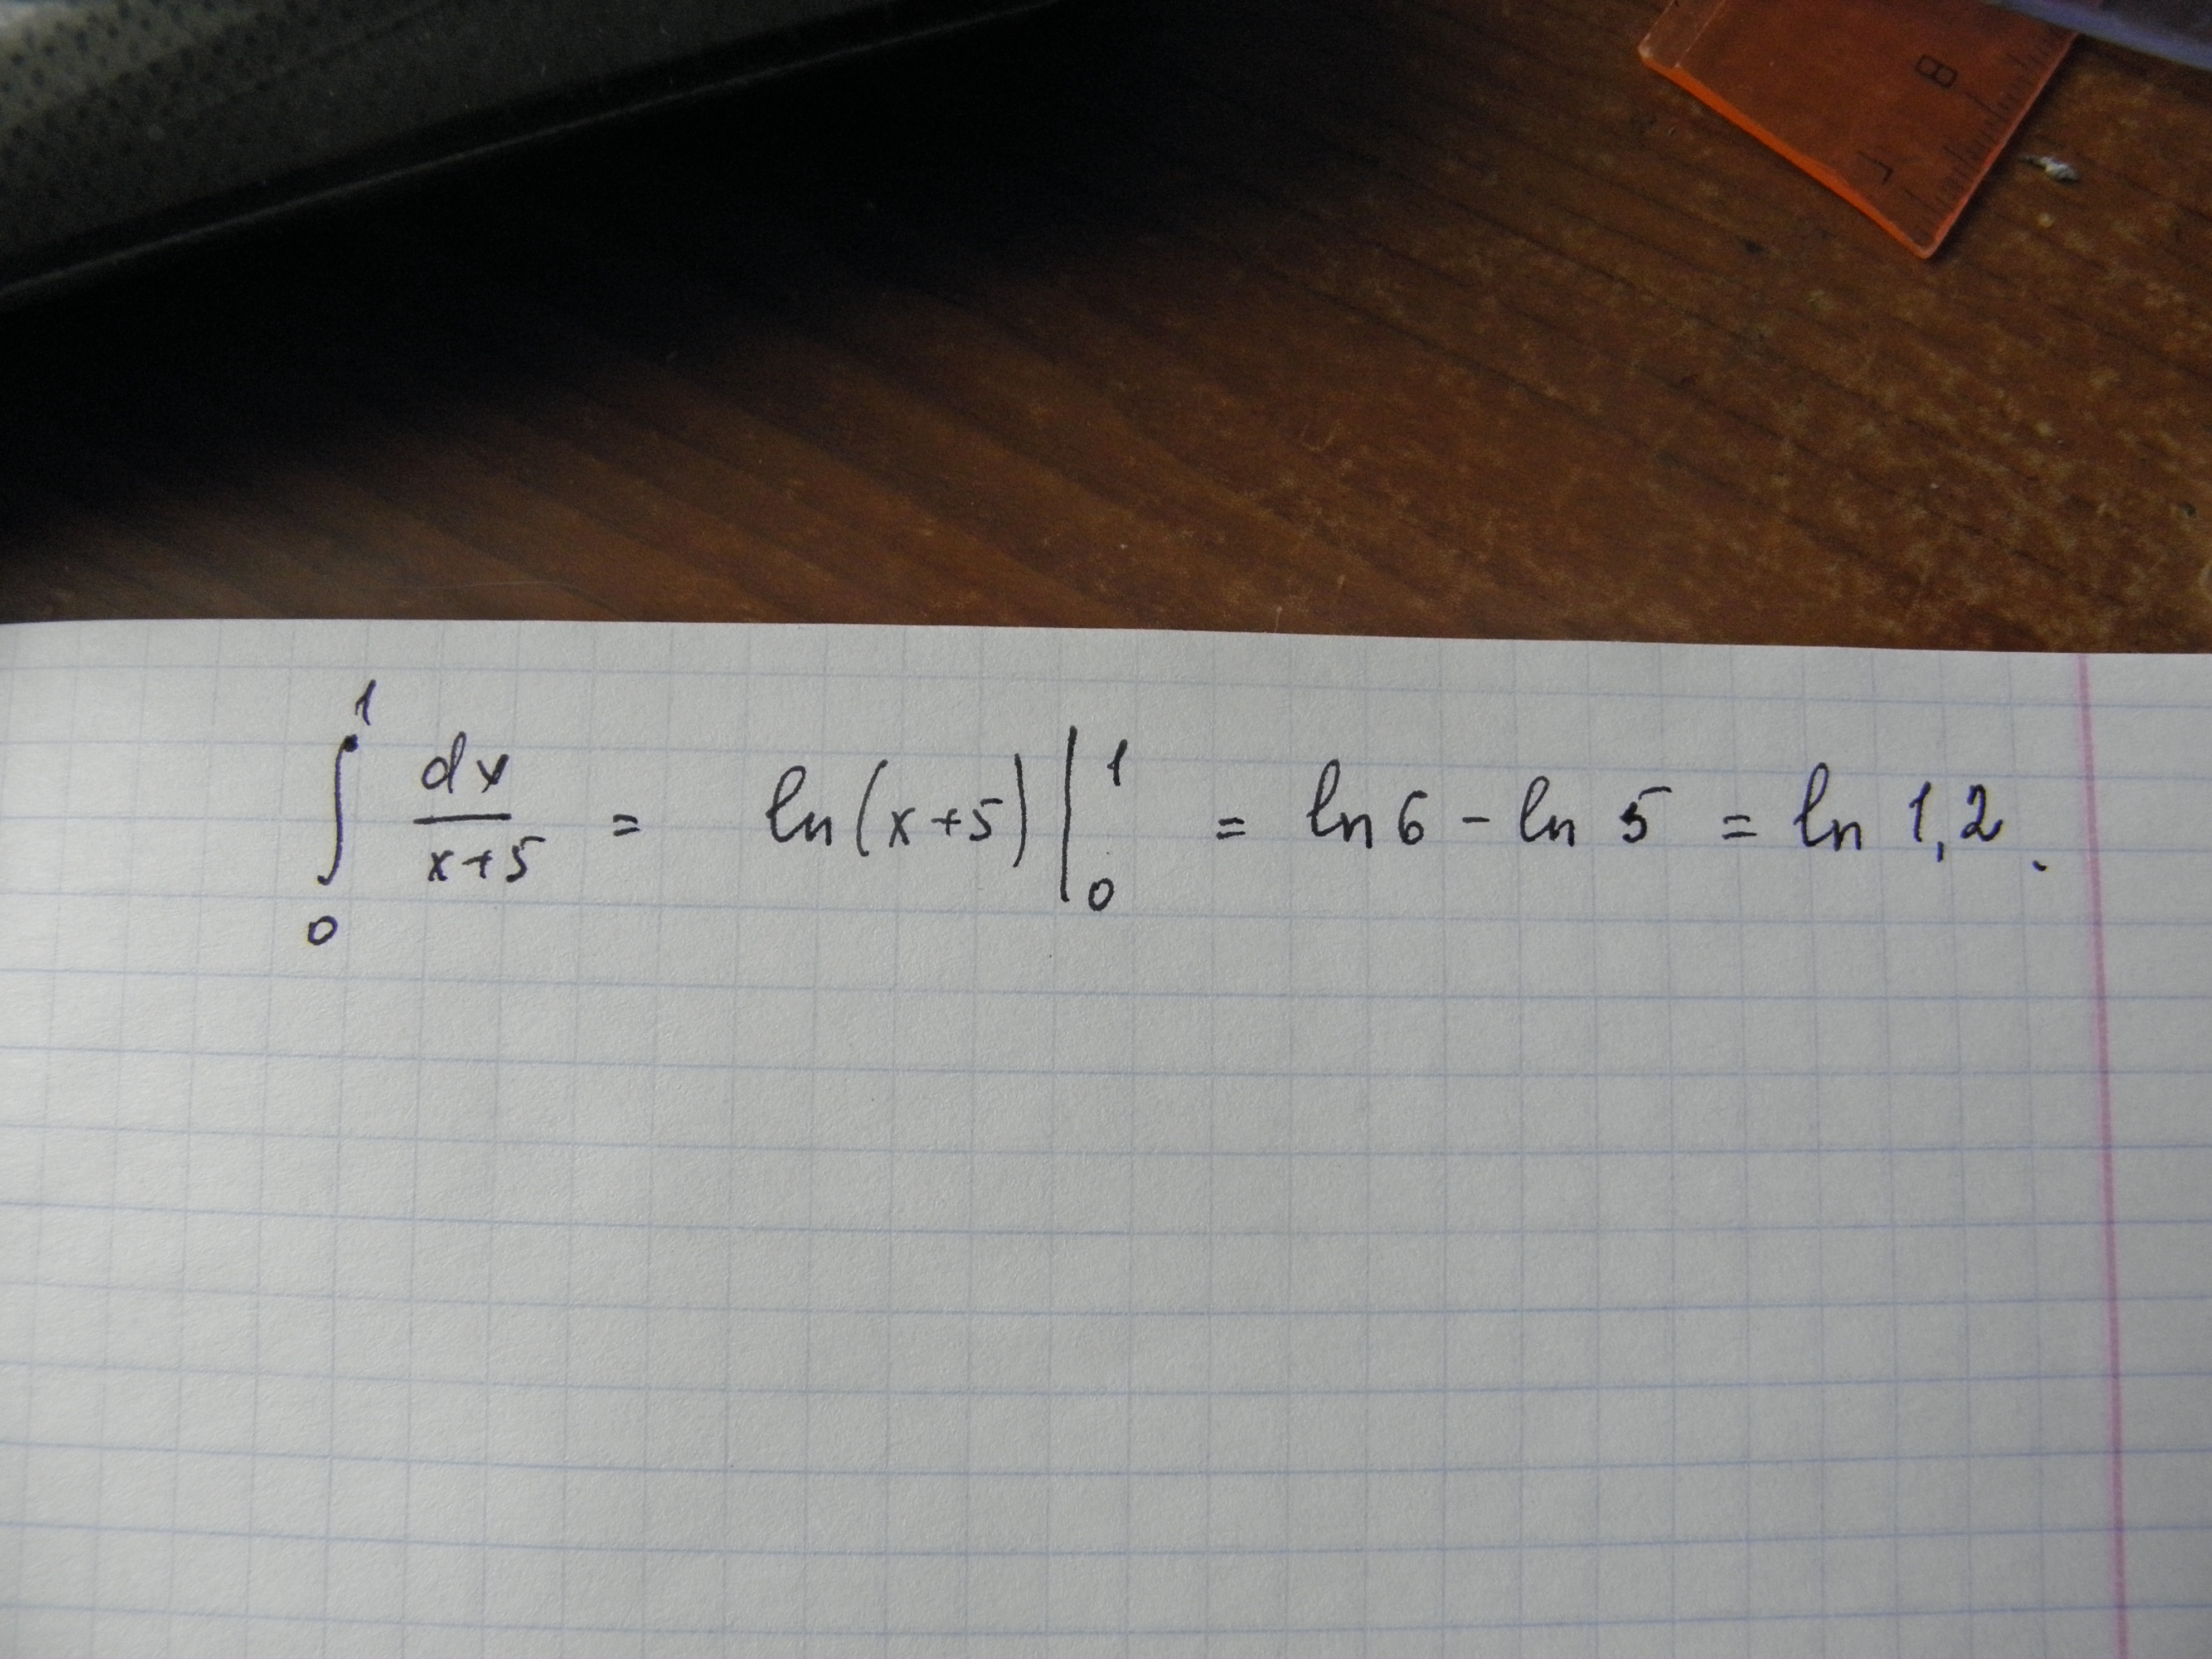 8
7
∫₀¹ dx/(x+5) = ln(x+5)|₀¹ = ln 6 - ln 5 = ln 1,2.